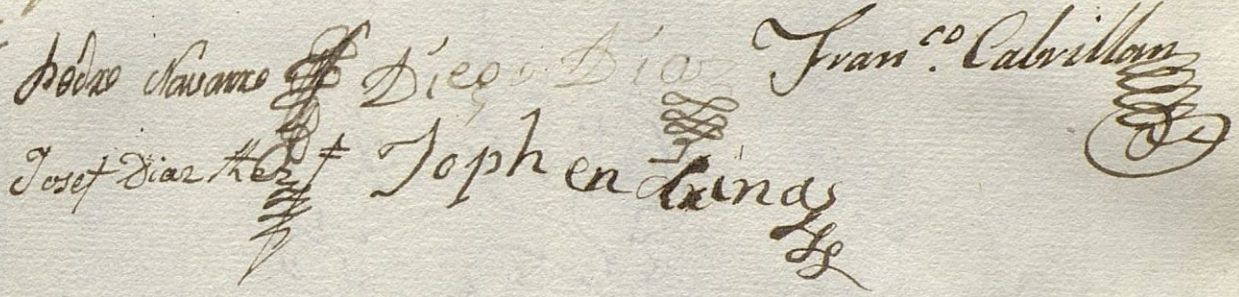 Pedro Navarro Diego Dia Franco. Calvillan
Josef Diaz Joph en